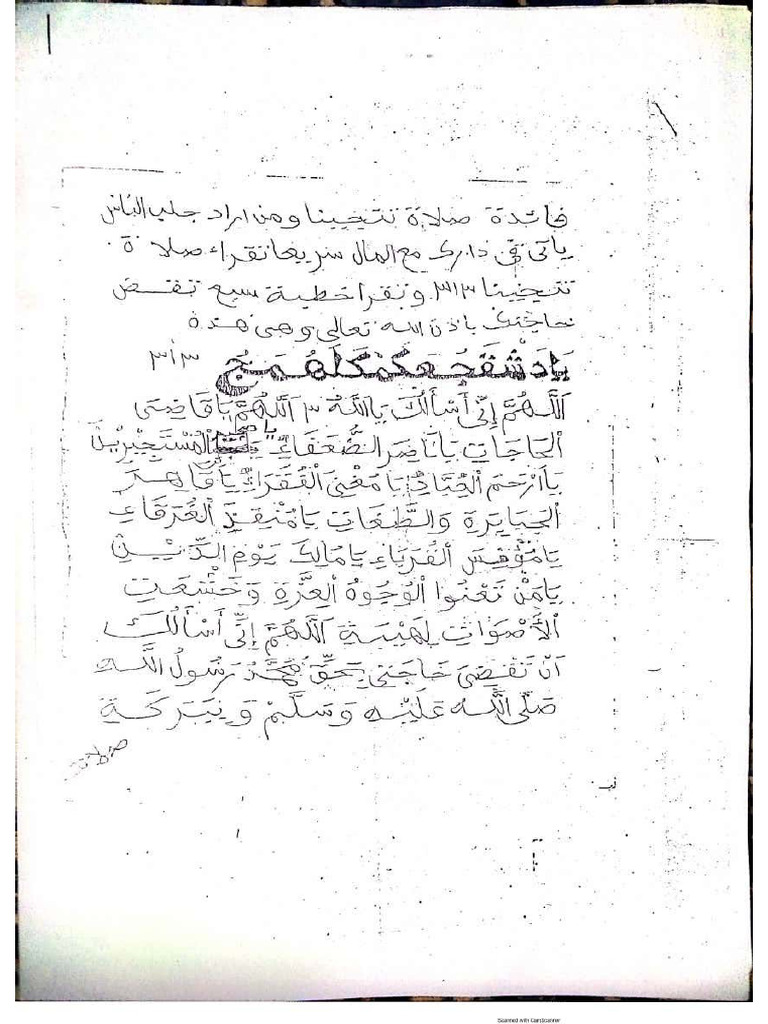 فائدة صلاة تنجينا ومن اراد جلب الناس
ياتى فى دارك مع المال سريعا تقراء صلا ة
تنجينا ٣١٣ و تقرا خطبة سبع تقض
حاجتك باذن الله تعالى وهى هذة
٣١٣
اَللَّهُمَّ اِنِّى أَسْأَلُكَ يَااللهُ ٣ اَللَّهُمَّ يَا قَاضِىَ
الْحَاجَاتِ يَانَاصِرَ الضُّعَفَاءِ يَا الْمُسْتَجِيْرِيْنَ
يَااَرْحَمَ الْعِبَادِ يَا مُغْنِىَ الْفُقَرَاءِ يَا قَاهِرَ
الْجَبَابِرَةِ وَالطُّغَاتِ يَا مُنْقِذَ الْغُرَقَاءِ
يَا مُوْنِسَ الْغُرَبَاءِ يَا مَالِكَ يَوْمِ الدِّيْنِ
يَامَنْ تَعْنُوا الْوُجُوْهُ الْعِزَّةِ وَخَشَعَتِ
الْأَصْوَاتِ لِهَيْبَةِ اَللَّهُمَّ اِنِّى أَسْأَلُكَ
اَنْ تَقْضِىَ حَاجَتِى بِحَقِّ مُحَمَّدُ رَسُولُ اللهِ
صَلَّى اللهُ عَلَيْهِ وَسَلَّمْ وَ بِبَرَكَةِ
صلاة
Scanned with CamScanner